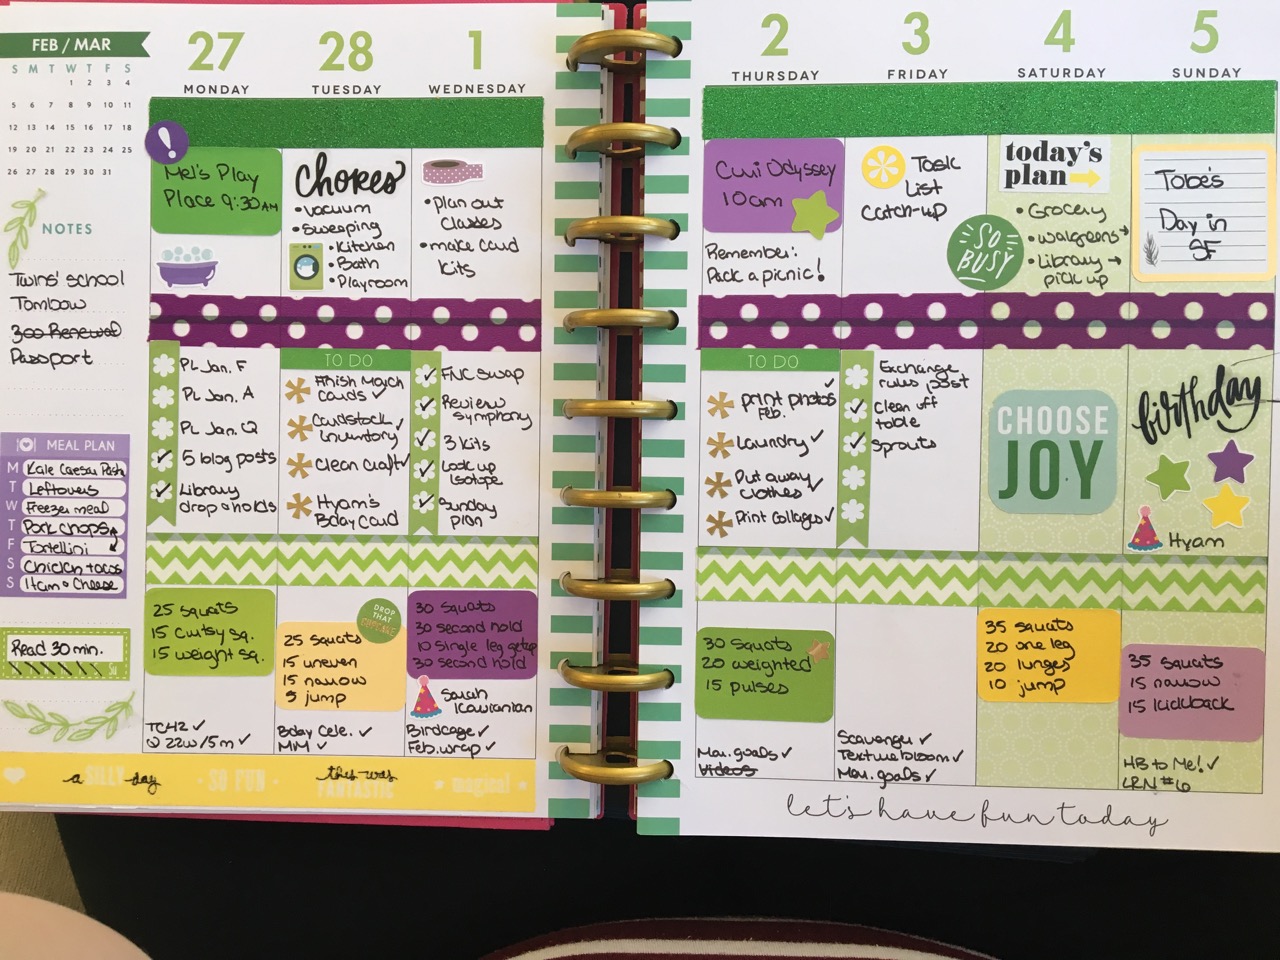 FEB / MAR
S M T W T F S
1 2 3 4
5 6 7 8 9 10 11
12 13 14 15 16 17 18
19 20 21 22 23 24 25
26 27 28 29 30 31
NOTES
Twins' school
Tombow
300 Renewal
Passport
MEAL PLAN
M Kale Caesar Pasta
T Leftovers
W Freezer meal
T Pork chops
F Tortellini
S Chicken tacos
S Ham & Cheese
Read 30 min.
27
MONDAY
!
Mel's Play
Place 9:30AM
PL Jan. F
PL Jan. A
PL Jan. Q
5 blog posts
Library
drop & holds
25 squats
15 curtsy sq.
15 weight sq.
TCH2 ✓
Q 22w/5m ✓
a SILLY day
28
TUESDAY
Chores
• Vacuum
• Sweeping
• Kitchen
• Bath
• Playroom
TO DO
Finish March
cards ✓
Cardstock
inventory ✓
Clean Craft ✓
Hyam's
Bday Card
DROP
THAT
CUPCAKE
25 squats
15 uneven
15 narrow
5 jump
Bday Cele. ✓
MM ✓
SO FUN
this was
FANTASTIC
1
WEDNESDAY
• Plan out
classes
• make card
kits
✓ FNC Swap
✓ Review
symphony
✓ 3 kits
✓ Look up
isotope
✓ Sunday
plan
30 squats
30 second hold
10 single leg getup
30 second hold
Sarah
Birdcage ✓
Feb. wrap ✓
magical
2
THURSDAY
CuriOdyssey
10am
Remember:
Pack a picnic!
TO DO
print photos ✓
Feb.
Laundry ✓
Put away
clothes ✓
Print Collages ✓
30 squats
20 weighted
15 pulses
Mar. goals ✓
Videos
3
FRIDAY
Task
List
Catch-up
Exchange
rules post
✓ Clean off
table
✓ Sprouts
Scavenger ✓
Texture bloom ✓
Mar. goals ✓
4
SATURDAY
today's
plan
SO
BUSY
• Grocery
• Walgreens →
• Library →
pick up
CHOOSE
JOY
35 squats
20 one leg
20 lunges
10 jump
5
SUNDAY
Tobe's
Day in
SF
birthday
Hyam
35 squats
15 narrow
15 kickback
HB to Me! ✓
LRN #6
let's have fun today